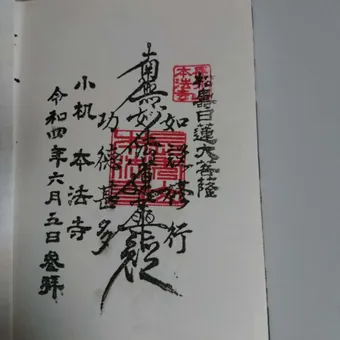 本法寺
日蓮大菩薩
如説修行
南無妙法蓮華経
功徳甚多
小机 本法寺
令和四年六月五日 参拝